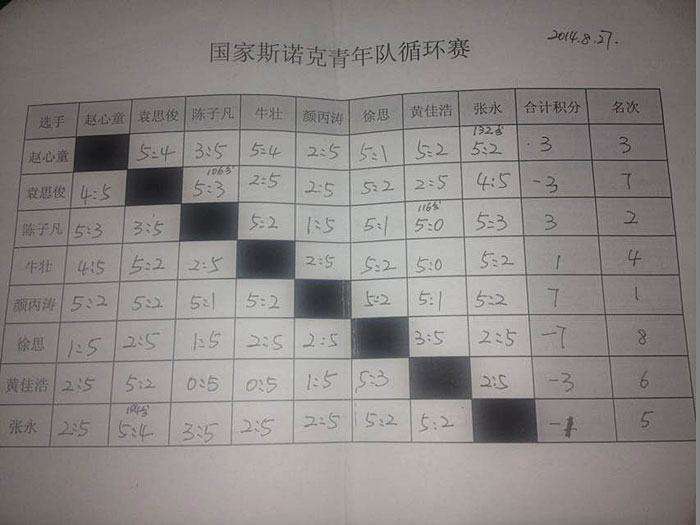 2014.8.27.
国家斯诺克青年队循环赛
选手 赵心童 袁思俊 陈子凡 牛壮 颜丙涛 徐思 黄佳浩 张永 合计积分 名次
赵心童 5:4 3:5 5:4 2:5 5:1 5:2 132分 5:2 3 3
袁思俊 4:5 106分 5:3 2:5 2:5 5:2 2:5 4:5 -3 7
陈子凡 5:3 3:5 5:2 1:5 5:1 116分 5:0 5:3 3 2
牛壮 4:5 5:2 2:5 2:5 5:2 5:0 5:2 1 4
颜丙涛 5:2 5:2 5:1 5:2 5:2 5:1 5:2 7 1
徐思 1:5 2:5 1:5 2:5 2:5 3:5 2:5 -7 8
黄佳浩 2:5 5:2 0:5 0:5 1:5 5:3 2:5 -3 6
张永 2:5 5:4 3:5 2:5 2:5 5:2 5:2 -1 5